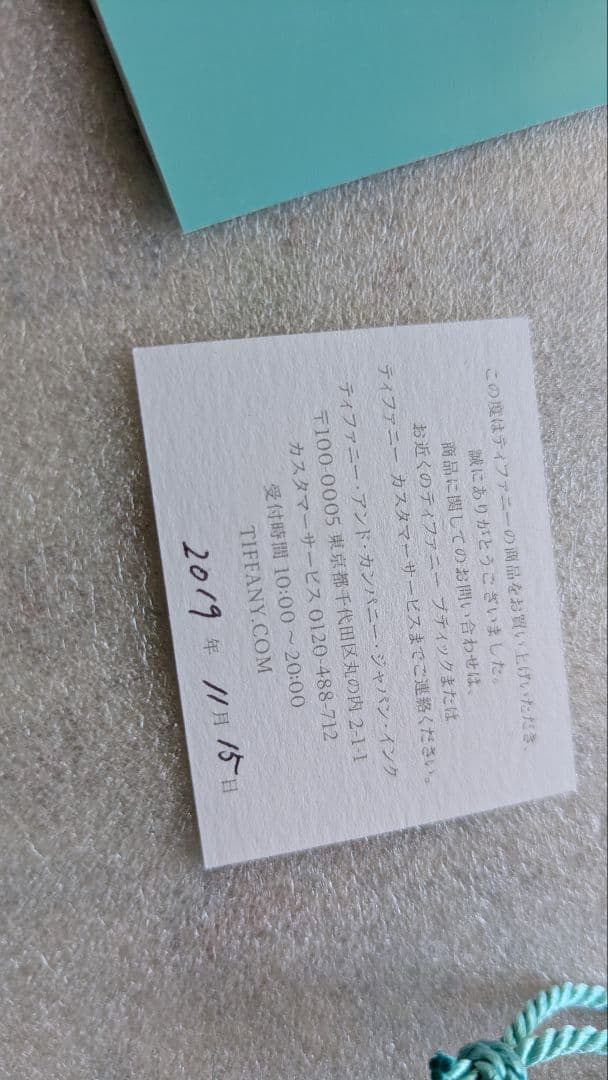 この度はティファニーの商品をお買い上げいただき、
誠にありがとうございました。
商品に関してのお問い合わせは、
お近くのティファニー ブティックまたは
ティファニー カスタマーサービスまでご連絡ください。
ティファニー・アンド・カンパニー・ジャパン・インク
〒100-0005 東京都千代田区丸の内 2-1-1
カスタマーサービス 0120-488-712
受付時間 10:00 ~ 20:00
TIFFANY.COM
2019 年 11 月 15 日